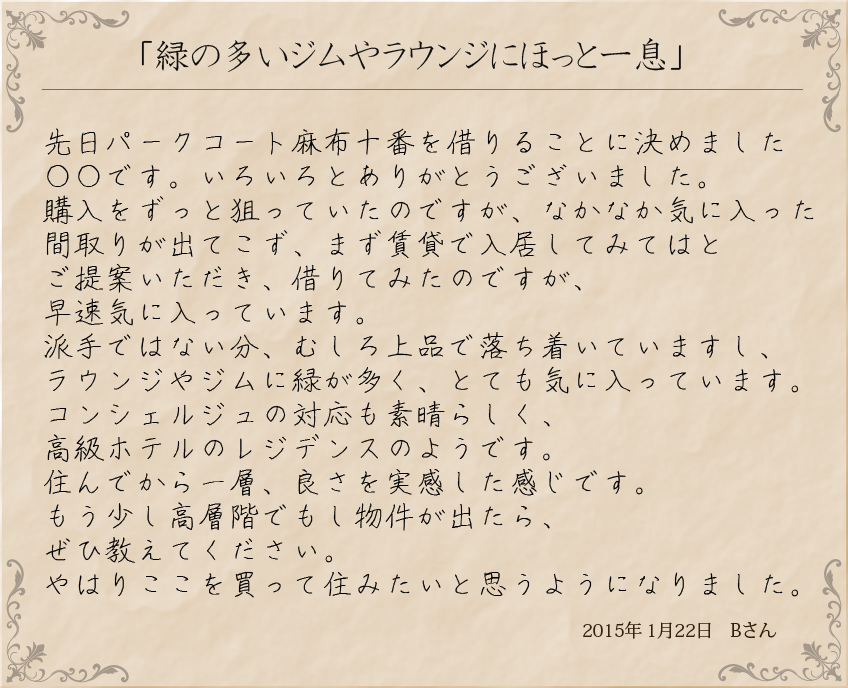 「緑の多いジムやラウンジにほっと一息」
先日パークコート麻布十番を借りることに決めました
〇〇です。いろいろとありがとうございました。
購入をずっと狙っていたのですが、なかなか気に入った
間取りが出てこず、まず賃貸で入居してみてはと
ご提案いただき、借りてみたのですが、
早速気に入っています。
派手ではない分、むしろ上品で落ち着いていますし、
ラウンジやジムに緑が多く、とても気に入っています。
コンシェルジュの対応も素晴らしく、
高級ホテルのレジデンスのようです。
住んでから一層、良さを実感した感じです。
もう少し高層階でもし物件が出たら、
ぜひ教えてください。
やはりここを買って住みたいと思うようになりました。
2015年 1月22日　Bさん